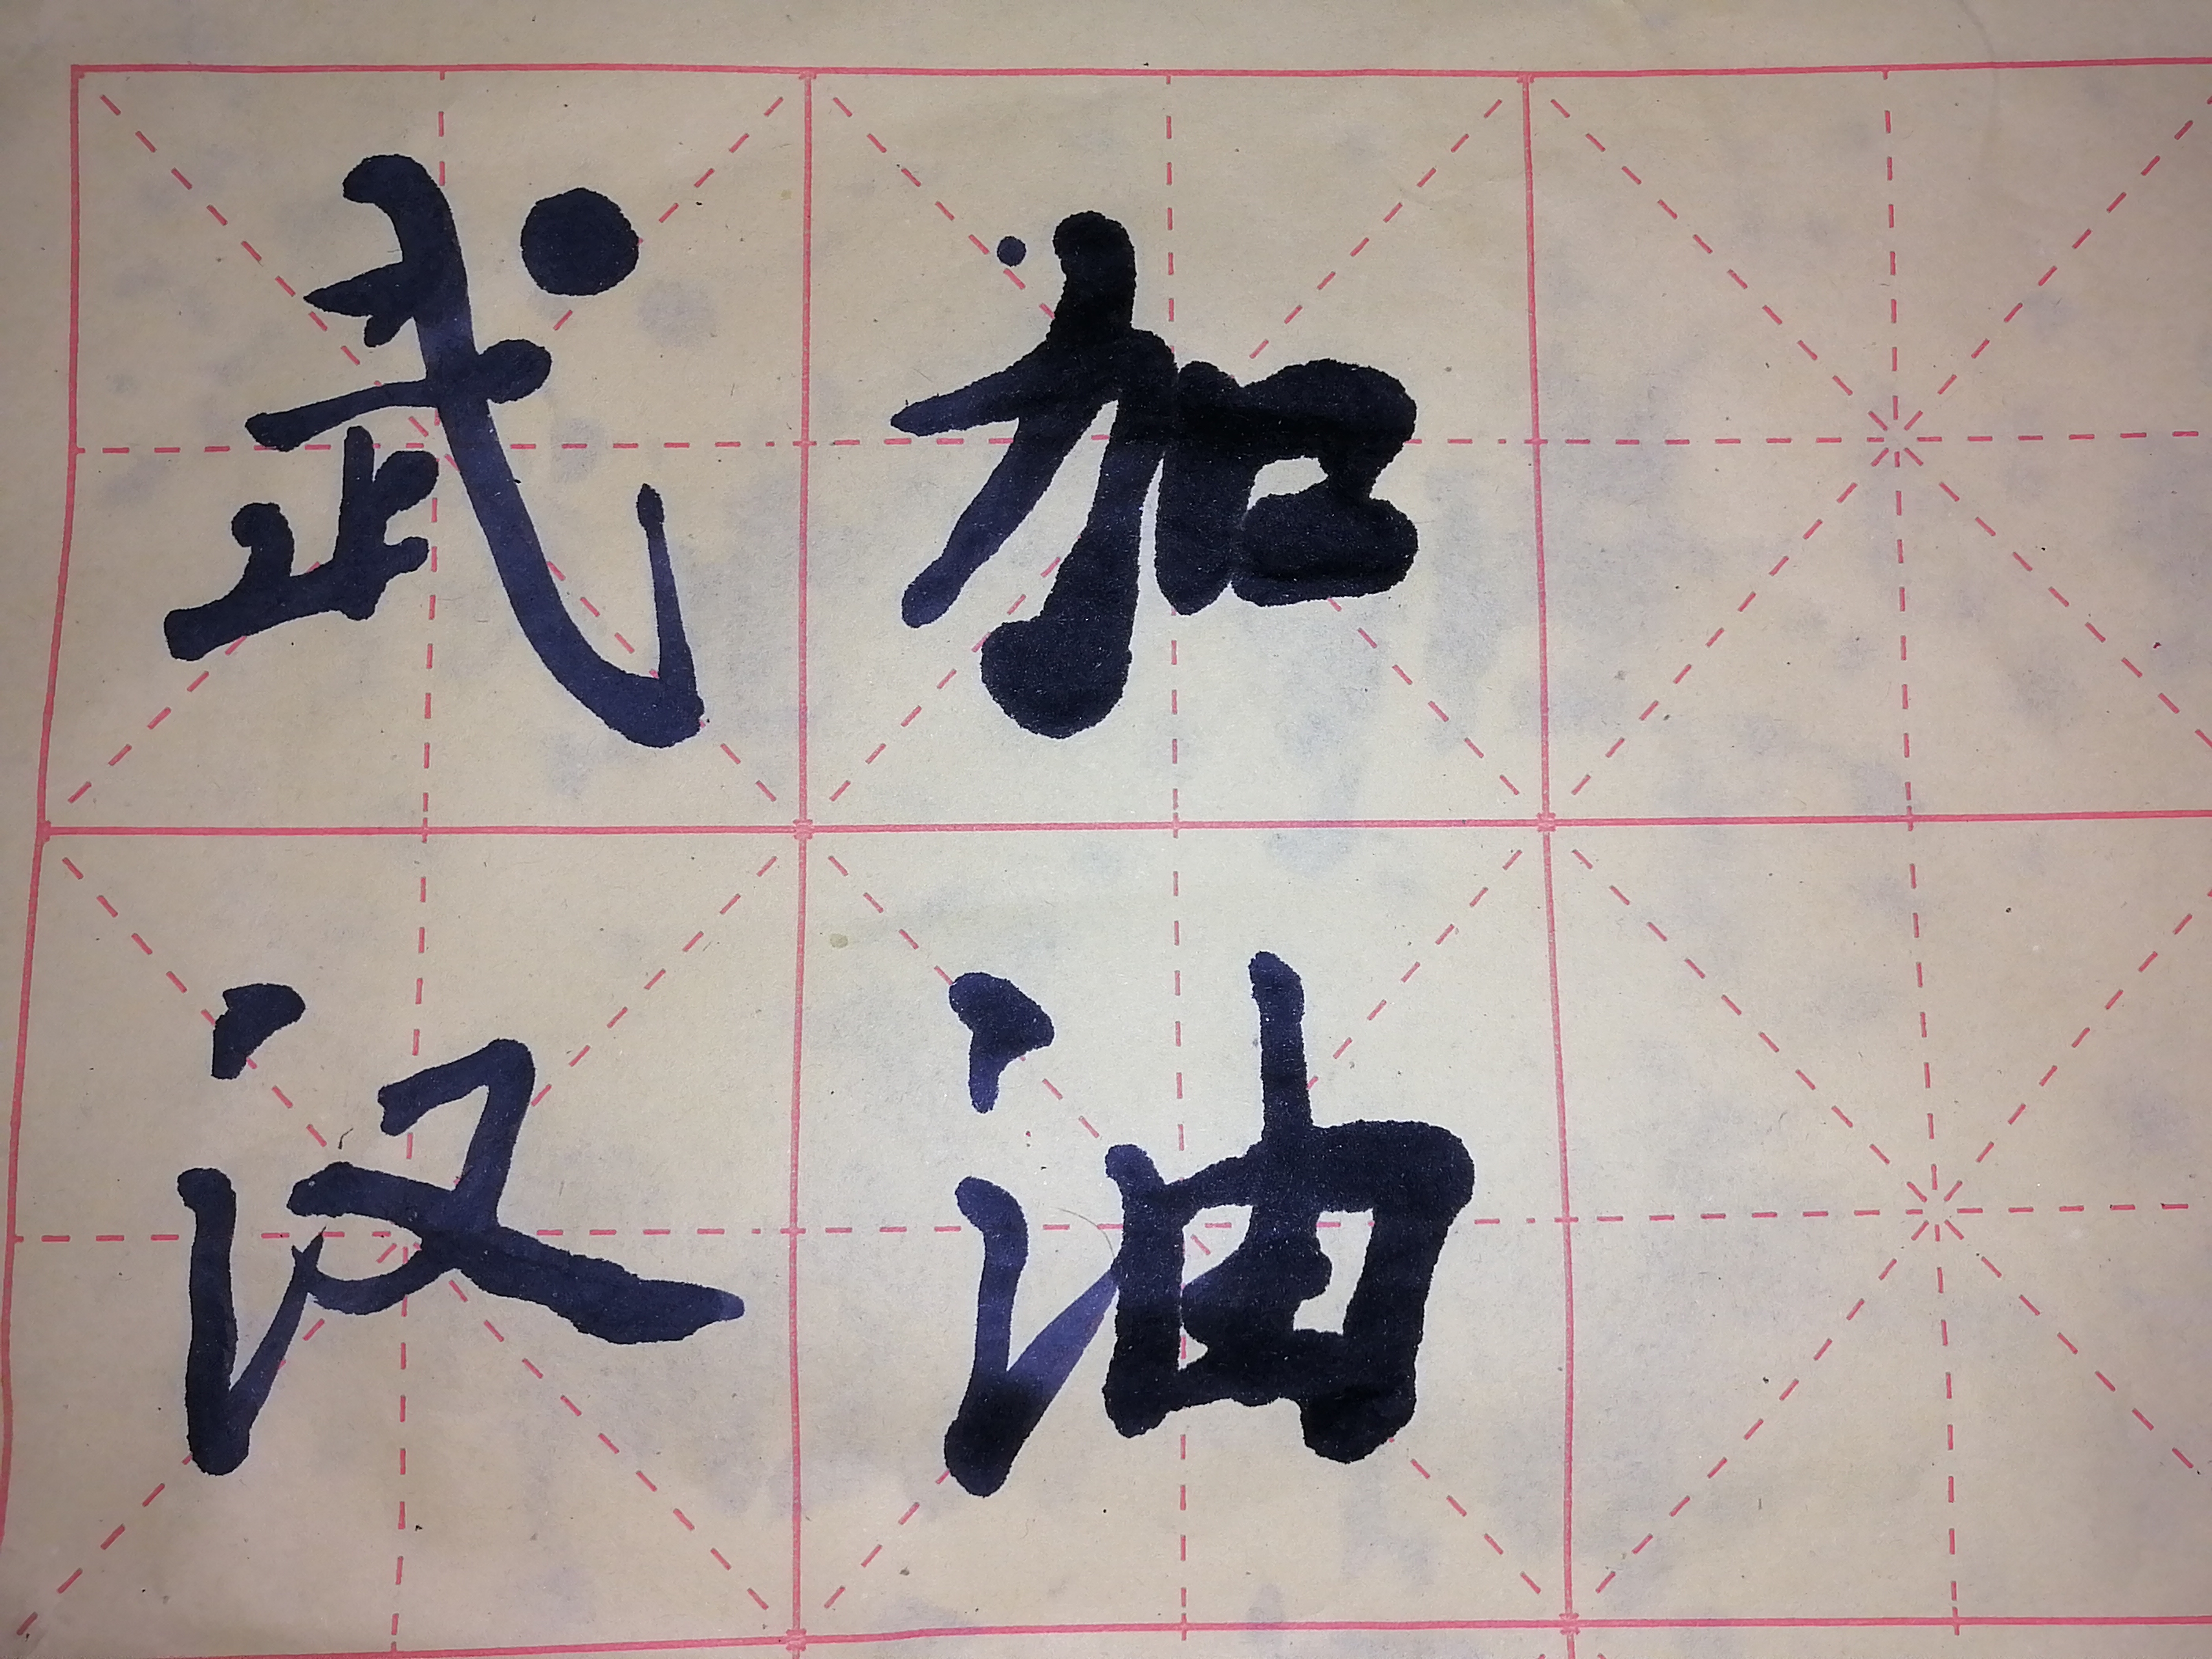 武汉
加油